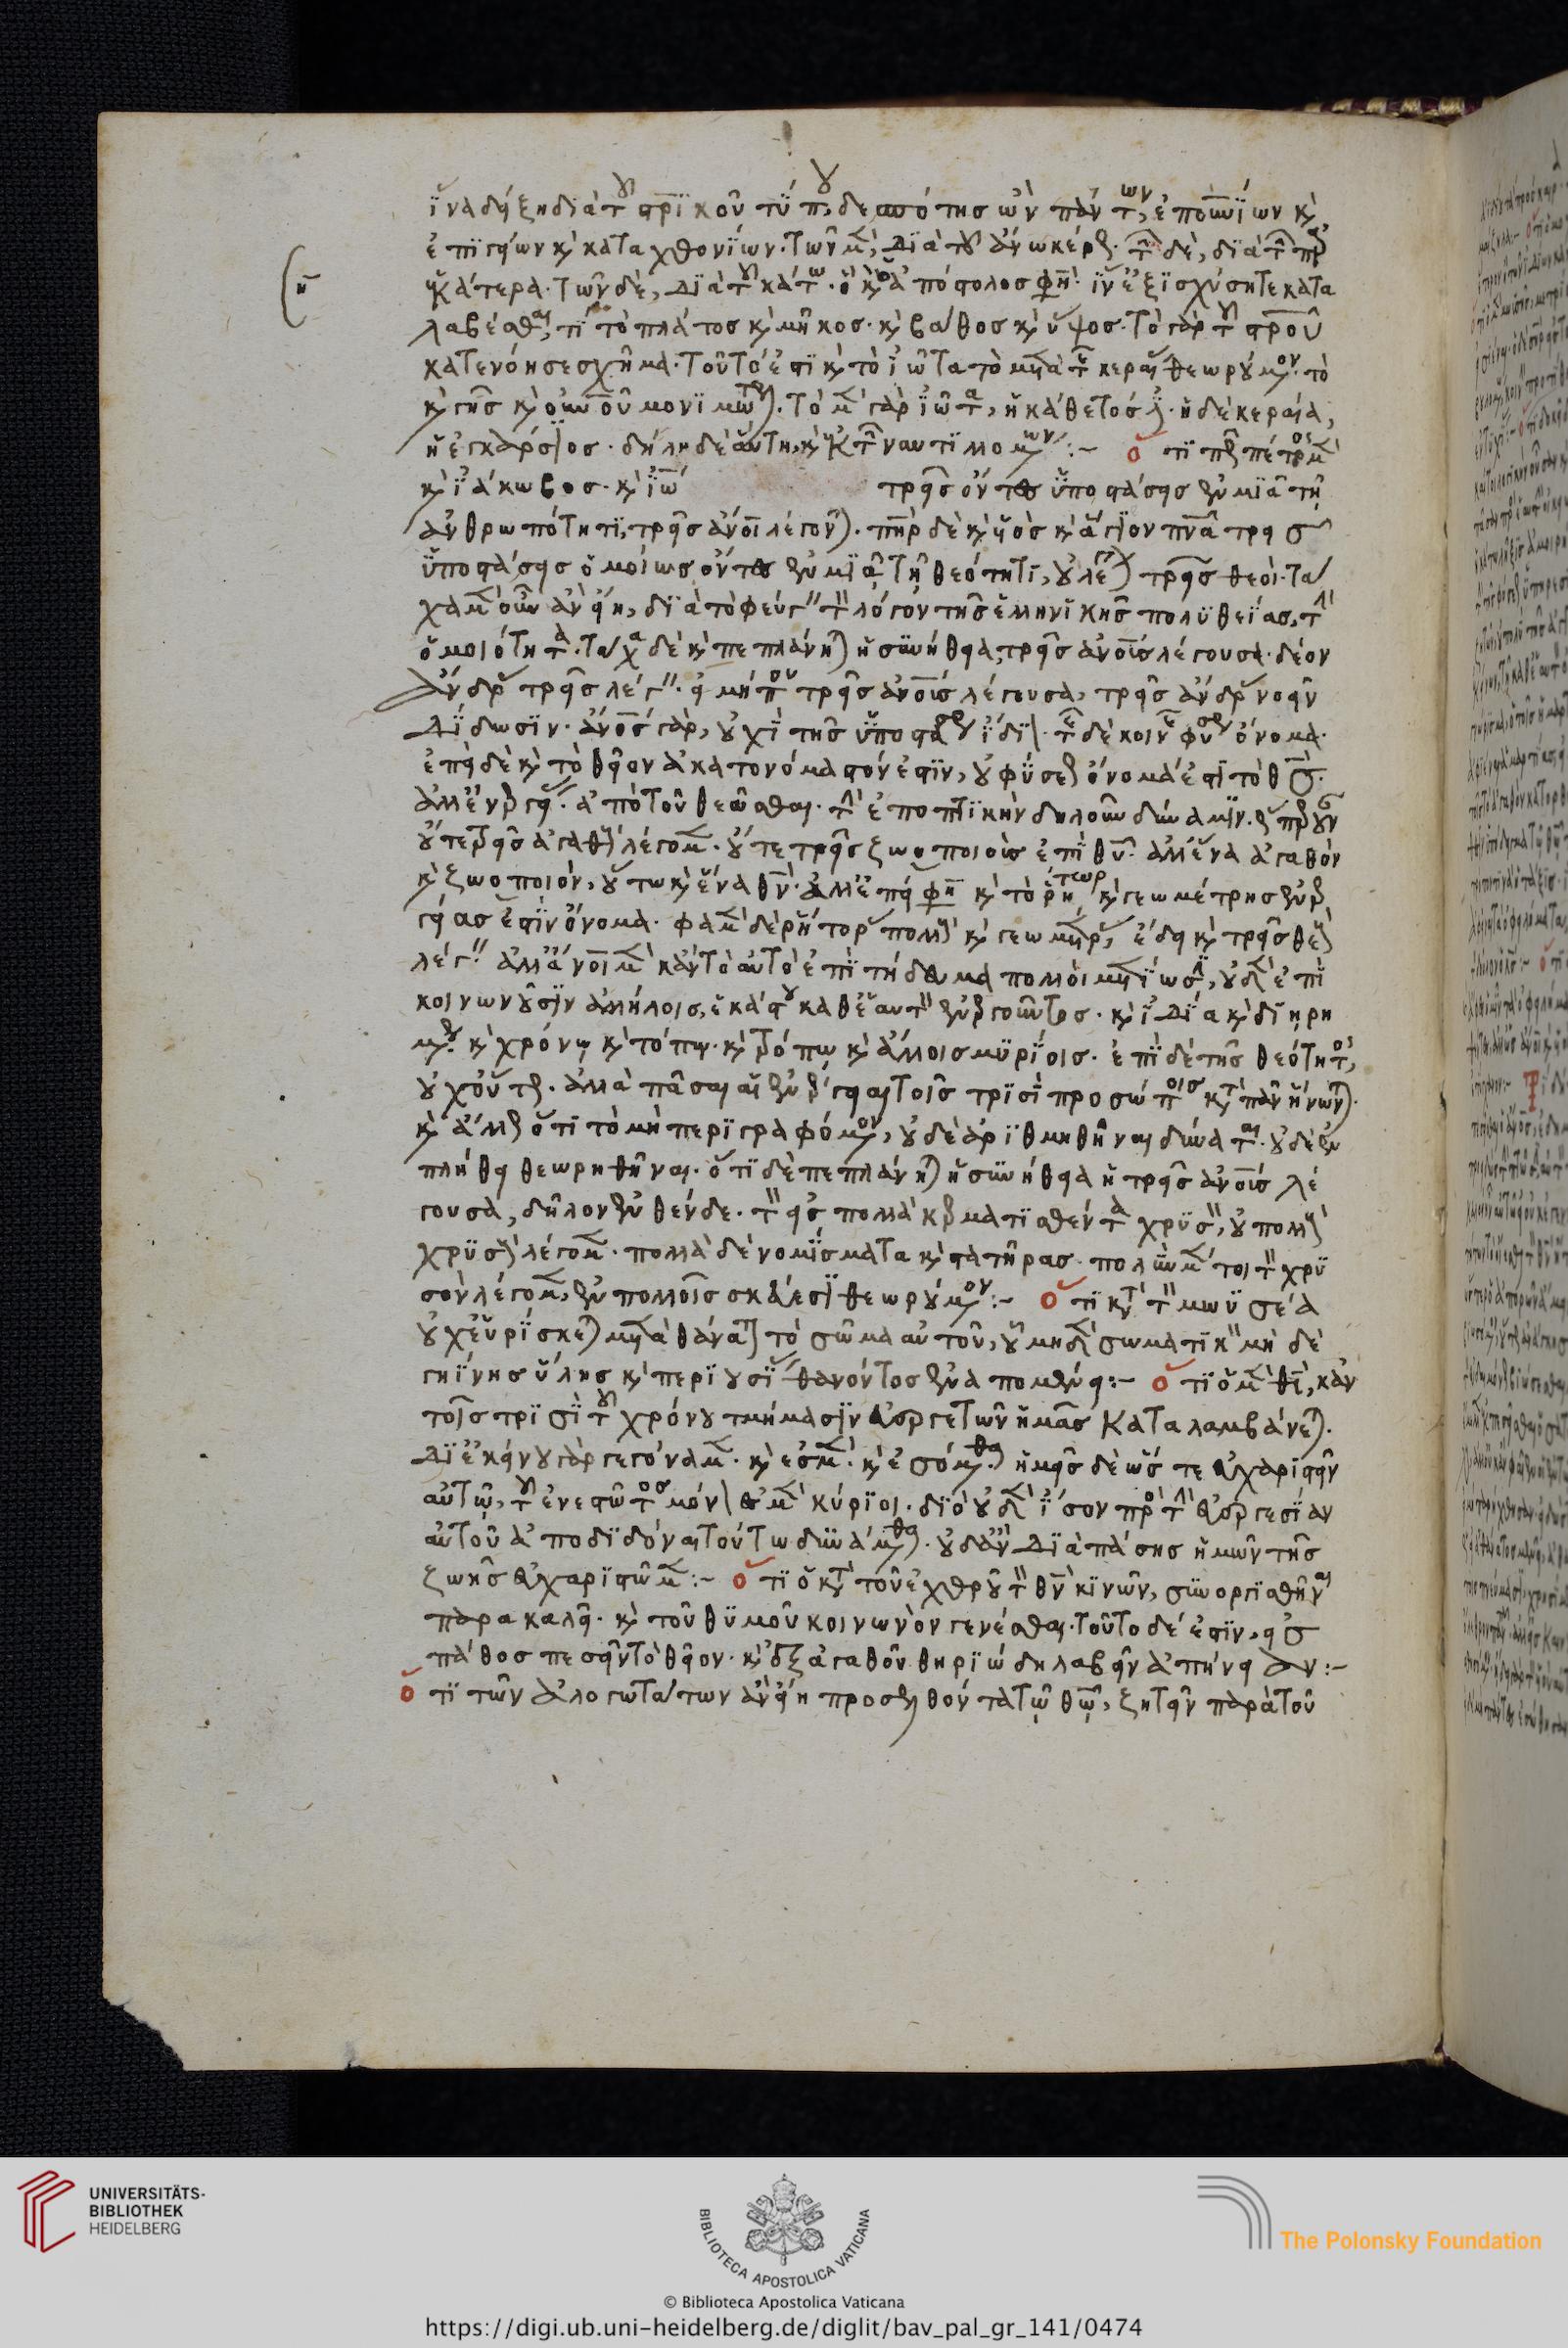 ἵνα δείξη διὰ τοῦ σταυρικοῦ τύπου, δεσπότης ὢν πάντων, ἐπουρανίων καὶ
ἐπιγείων καὶ καταχθονίων. τῶν μὲν, διὰ τοῦ ἄνω κέρως. τῶν δὲ, διὰ τῶν παρ'
ἑκάτερα. τῶν δὲ, διὰ τοῦ κάτω. ὃ καὶ ὁ ἀπόστολος φησὶν ἵν' ἐξισχύσητε κατα
λαβέσθαι, τί τὸ πλάτος καὶ μῆκος. καὶ βάθος καὶ ὕψος. τὸ γὰρ τοῦ σταυροῦ
κατενόησε σχῆμα. τοῦτό ἐστι καὶ τὸ ἰῶτα τὸ μετὰ τῆς κεραίας θεωρούμενον. τὸ
καὶ γῆς καὶ οὐρανοῦ μονιμώτερον. τὸ μὲν γὰρ ἰῶτα, ἡ κάθετός ἐστιν. ἡ δὲ κεραία,
ἡ ἐγκάρσιος. δήλη δὲ αὕτη, καὶ ἐκ τῶν ναυτιλλομένων :~ ὅτι πῶς πέτρος μὲν
καὶ ἰάκωβος. καὶ ἰωάννης τρεῖς ὄντες ὑποστάσεις ἐν μιᾶ τῆ
ἀνθρωπότητι, τρεῖς ἄνθρωποι λέγονται. πατὴρ δὲ καὶ υἱὸς καὶ ἅγιον πνεῦμα τρεῖς
ὑποστάσεις ὁμοίως ὄντες ἐν μιᾷ τῇ θεότητι, οὐ λέγονται τρεῖς θεοί. τά
χα μὲν οὖν ἂν εἴη, διὰ τὸ φεύγειν τὴν λόγον τῆς ἑλληνικῆς πολυθείας, τὴν
ὁμοιότητα. τάχα δὲ καὶ πεπλάνηται ἡ συνήθεια, τρεῖς ἀνθρώπους λέγουσα. δέον
ἄνδρας τρεῖς λέγειν. εἰ μή που τρεῖς ἀνθρώπους λέγουσα, τρεῖς ἄνδρας νοεῖν
δίδωσιν. ἄνθρωπος γὰρ, οὐχὶ τῆς ὑποστάσεως ἴδιον. τῆς δὲ κοινῆς φύσεως ὄνομα.
ἐπεὶ δὲ καὶ τὸ θεῖον ἀκατονόμαστόν ἐστιν, οὐ φύσεως ὄνομά ἐστι τὸ θεός.
ἀλλ' ἐνεργείας. ἀπὸ τοῦ θεᾶσθαι. τὴν ἐποπτικὴν δηλοῦν δύναμιν. ὥσπερ οὖν
οὔτε τρεῖς ἀγαθοὺς λέγομεν. οὔτε τρεῖς ζωοποιοὺς ἐπὶ θεοῦ. ἀλλ' ἕνα ἀγαθὸν
καὶ ζωοποιόν, οὕτω καὶ ἕνα θεόν. ἀλλ' ἐπεί φησιν καὶ τὸ ῥήτωρ καὶ γεωμέτρης ἐνερ
γείας ἐστὶν ὄνομα. φαμὲν δὲ ῥήτορας πολλοὺς καὶ γεωμέτρας, ἔδει καὶ τρεῖς θεοὺς
λέγειν. ἀλλ' ἄνθρωποι μὲν κἂν τὸ αὐτὸ ἐπιτήδευμα πολλοὶ μετίωσιν, οὐδὲν ἐπι
κοινωνοῦσιν ἀλλήλοις, ἑκάστου καθ' ἑαυτὸν ἐνεργοῦντος. καὶ ἰδία καὶ διηρη
μένως. καὶ χρόνῳ καὶ τόπῳ. καὶ τρόπω καὶ ἄλλοις μυρίοις. ἐπὶ δὲ τῆς θεότητος,
οὐχ οὕτως. ἀλλὰ πᾶσαι αἱ ἐνέργειαι τοῖς τρισὶ προσώποις κατὰ πᾶν ἥνωνται.
καὶ ἄλλως ὅτι τὸ μὴ περιγραφόμενον, οὐδὲ ἀριθμηθῆναι δύναται. οὐδὲ ἐν
πλήθει θεωρηθῆναι. ὅτι δὲ πεπλάνηται ἡ συνήθεια ἡ τρεῖς ἀνθρώπους λέ
γουσα, δῆλον ἐνθένδε. τὸν εἰς πολλὰ κερματισθέντα χρυσὸν, οὐ πολλοὺς
χρυσοὺς λέγομεν. πολλὰ δὲ νομίσματα καὶ στατῆρας. πολὺν μέντοι τὸν χρυ
σὸν λέγομεν, ἐν πολλοῖς σκεύεσι θεωρούμενον :~ ὅτι κατὰ τὸν μωϋσέα
οὐχ εὑρίσκεται μετὰ θάνατον τὸ σῶμα αὐτοῦ, οὗ μηδὲν σωματικὸν μὴ δὲ
γηίνης ὕλης καὶ περιουσίας θανόντος ἐναπομένει :~ ὅτι ὁ μὲν θεὸς, κἀν
τοῖς τρισὶ τοῦ χρόνου τμήμασιν εὐεργετῶν ἡμᾶς καταλαμβάνεται.
δι' ἐκείνου γὰρ γεγόναμεν. καὶ ἐσμὲν. καὶ ἐσόμεθα. ἡμεῖς δὲ ὥς τε εὐχαριστεῖν
αὐτῷ, τοῦ ἐνεστῶτος μόνον ἐσμὲν κύριοι. διὸ οὐδὲν ἴσον πρὸς τὴν εὐεργεσίαν
αὐτοῦ ἀποδιδόναι τούτω δυνάμεθα. οὐδ' ἂν διὰ πάσης ἡμῶν τῆς
ζωῆς εὐχαριστῶμεν :~ ὅτι ὁ κατὰ τοῦ ἐχθροῦ τὸν θεὸν κινῶν, συνοργισθῆναι
παρακαλεῖ. καὶ τοῦ θυμοῦ κοινωνὸν γενέσθαι. τοῦτο δέ ἐστιν, εἰς
πάθος πεσεῖν τὸ θεῖον. καὶ ἐξ ἀγαθοῦ θηριώδη λαβεῖν ἀπήνειαν :~
ὅτι τῶν ἀλογωτάτων ἂν εἴη προσελθόντα τῷ θεῷ, ζητεῖν παρὰ τοῦ
UNIVERSITÄTS-
BIBLIOTHEK
HEIDELBERG
BIBLIOTECA APOSTOLICA VATICANA
The Polonsky Foundation
© Biblioteca Apostolica Vaticana
https://digi.ub.uni-heidelberg.de/diglit/bav_pal_gr_141/0474